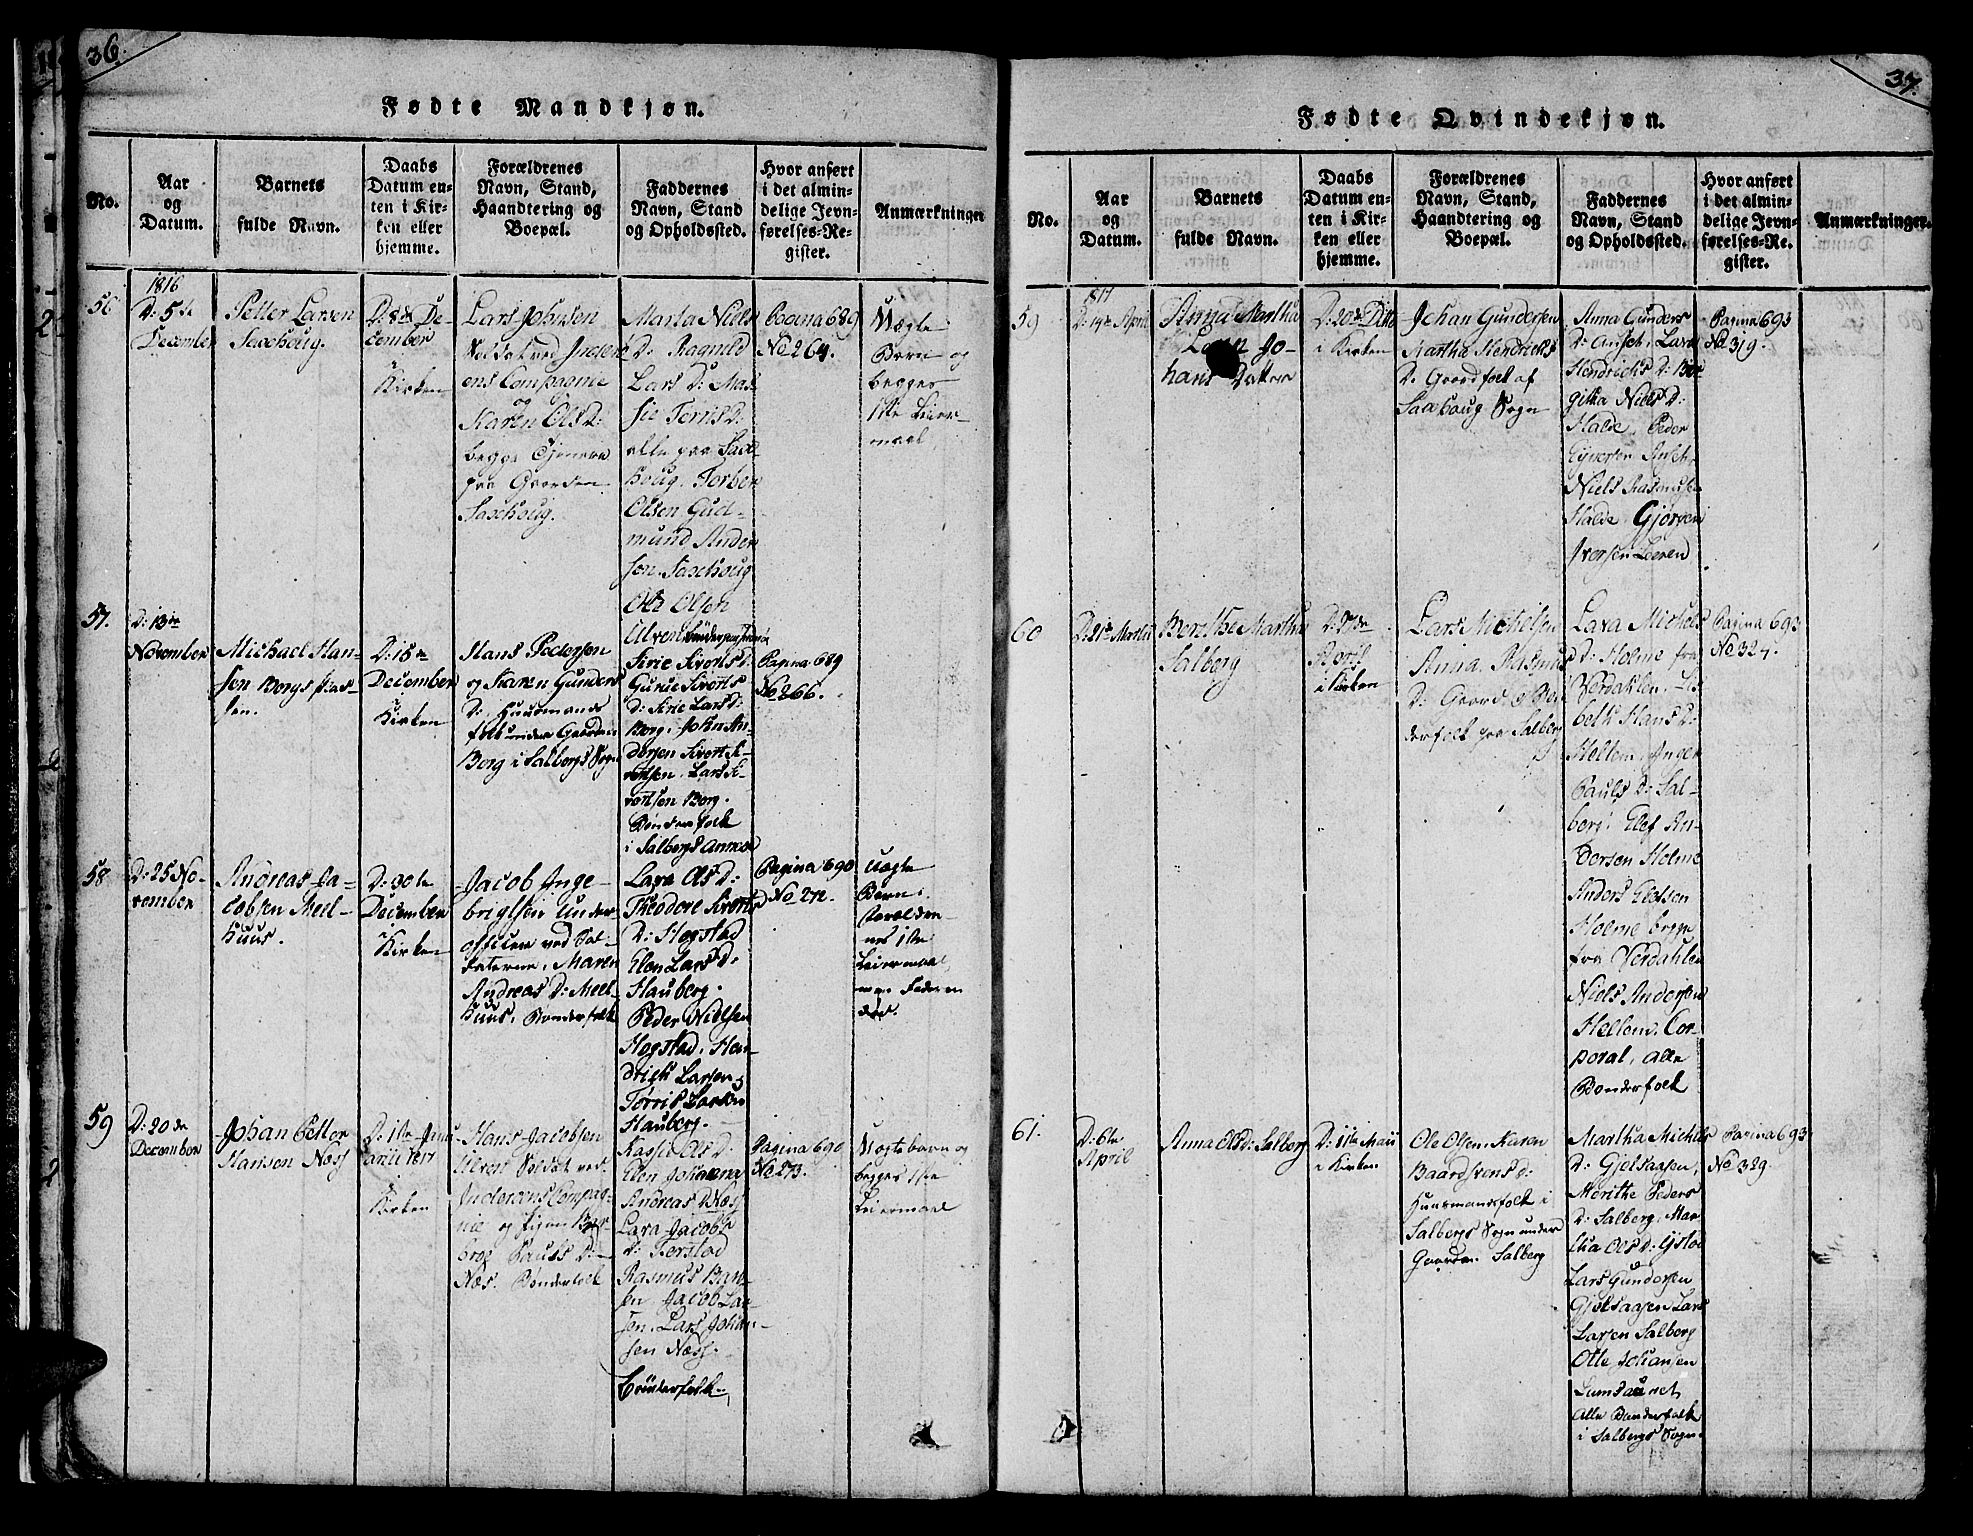 36.
Fødte Mandkjøn.
No.
Aar
og
Datum.
Barnets
fulde Navn.
Daabs
Datum en-
ten i Kir-
ken eller
hjemme.
Forældrenes
Navn, Stand,
Haandtering og
Boepæl.
Faddernes
Navn, Stand
og Opholdssted.
Hvor anført
i det almin-
delige Jevn-
førelses-Re-
gister.
Anmærkninger
56
1816
D: 5te
December
Petter Larsen
Saxhoug.
D: 8de De-
cember
i Kirken
Lars Johnsen
Soldat ved Inder-
ens Compagnie
og
Karen Ols D:
begge Tjenere
paa Gaarden
Saxhoug.
Marta Niels
D: Ragnild
Lars D: Mas-
sie Torris D:
alle paa Sax-
houg. Torber
Olsen Gud-
mund Ander
sen. Saxhoug
Ole Olsen
Ulven
Pagina 689
No 264.
Uægte
Barn og
begges
1ste Leier-
maal
57.
D: 13de
November
Michael Han-
sen Borgs
D: 18de
December
i Kirken
Hans Pedersen
og Karen Gunders
D: Huusmands
folk under Gaarden
Borg i Salbergs Sogn
Sirie Siverts D:
Gurue Siverts
D: Sirie Lars D:
Borg. John An-
dersen Sivert Si-
vertsen. Lars Si-
vertsen Borg.
Bønderfolk
i Salbergs Annex
Pagina 689
No 266.
58
D: 25 No-
vember
Andreas Ja-
cobsen Meel-
huus.
D: 30te
December
i Kirken
Jacob Inge-
brigtsen Under-
officeer ved Sol-
daterne. Maren
Andreas D: Meel-
huus. Bønderfolk
Lara Ols D:
Theodore Siverts
D: Hogstad
Elen Lars D:
Hauberg.
Peder Nielsen
Hogstad. Hen-
drich Larsen
Torris Larsen
Hauberg.
Pagina 690
No 272.
Uægte
Barn.
Foreldre-
nes 1ste
Leiermaal
59
D: 20de
December
Johan Petter
Hansen Næss
D: 1ste Janu-
arii 1817
i Kirken
Hans Jacobsen
Ulven Soldat ved
Inderøens Compag-
nie og Pigen
Pauls D:
Næs. Bønderfolk
Ols D:
Elen Johanna
Andreas D: Næss
Lara Jacobs
D: Forstad
Rasmus Han-
sen Jacob Lar-
sen. Lars Johan-
sen Næss.
Bønderfolk
Pagina 690
No 273.
Uægte barn og
begges 1ste
Leiermaal
37.
Fødte Qvindekjøn.
No.
Aar
og
Datum.
Barnets
fulde Navn.
Daabs
Datum en-
ten i Kir-
ken eller
hjemme.
Forældrenes
Navn, Stand,
Haandtering og
Boepæl.
Faddernes
Navn, Stand
og Opholdssted.
Hvor anført
i det almin-
delige Jevn-
førelses-Re-
gister.
Anmærkninger.
59
1817
D: 14de April
Anna Martha
Jo-
hans Datter
D: 20de Ditto
i Kirken
Johan Gundersen
Martha Hendrichs
D: Gaardfolk af
Saxhoug Sogn
Anna Gunders
D: Lara
Hendrichs D: Ber
githa Niels D:
Halde. Peder
Ejversen
Niels Rasmusen
Halde. Gjørgen
Iversen Leeren
Pagina 693
No 319.
60
D: 21de Martii
Berethe Martha
Salberg
D: 7de
April
i Kirken
Lars Michelsen
Anna Rasmus
D: Gaard og Bøn
derfolk paa Salberg
Lara Michels
D: Holme fra
Verdahlen. Lis
beth Hans D:
Hellem. Inger
Pauls D: Sal-
berg. Elef An-
dersen Holme
Anders Elefsen
Holme begge
fra Verdahlen
Niels Andersen
Hellem. Cor-
poral. alle
Bønderfolk
Pagina 693
No 324.
61.
D: 6te
April
Anna Ols D: Salberg
D: 11te Maii
i Kirken
Ole Olsen. Karen
Baardsvens D:
Huusmandsfolk i
Salbergs Sogn under
Gaarden Salberg
Martha Michels
D: Gjelsaasen,
Merithe Peders
D: Salberg. Mar-
tha Ols D:
Lars Gundersen
Gjelsaasen Lars
Larsen Salberg
Otte Johansen
Lumsaunet
Alle Bønderfolk
i Salbergs Sogn.
Pagina 693
No 329.